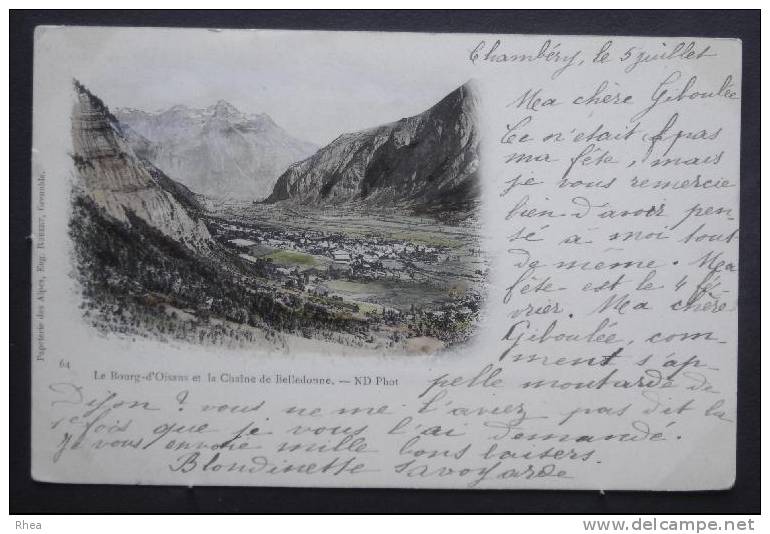 Chambéry, le 5 juillet
Ma chère Giboulée
Ce n'était pas
ma fête, mais
je vous remercie
bien d'avoir pen-
sé à moi tout
de meme. Ma
fête est le 4 fé-
vrier. Ma chère
Giboulée, com-
ment s'ap-
pelle moutarde de
Dijon ? vous ne me l'aviez pas dit la
1e fois que je vous l'ai demandé.
Je vous envoie mille bons baisers.
Blondinette Savoyarde
Papeterie des Alpes, Eug. Robert, Grenoble.
64
Le Bourg-d'Oisans et la Chaîne de Belledonne. — ND Phot
Rhea
www.delcampe.net